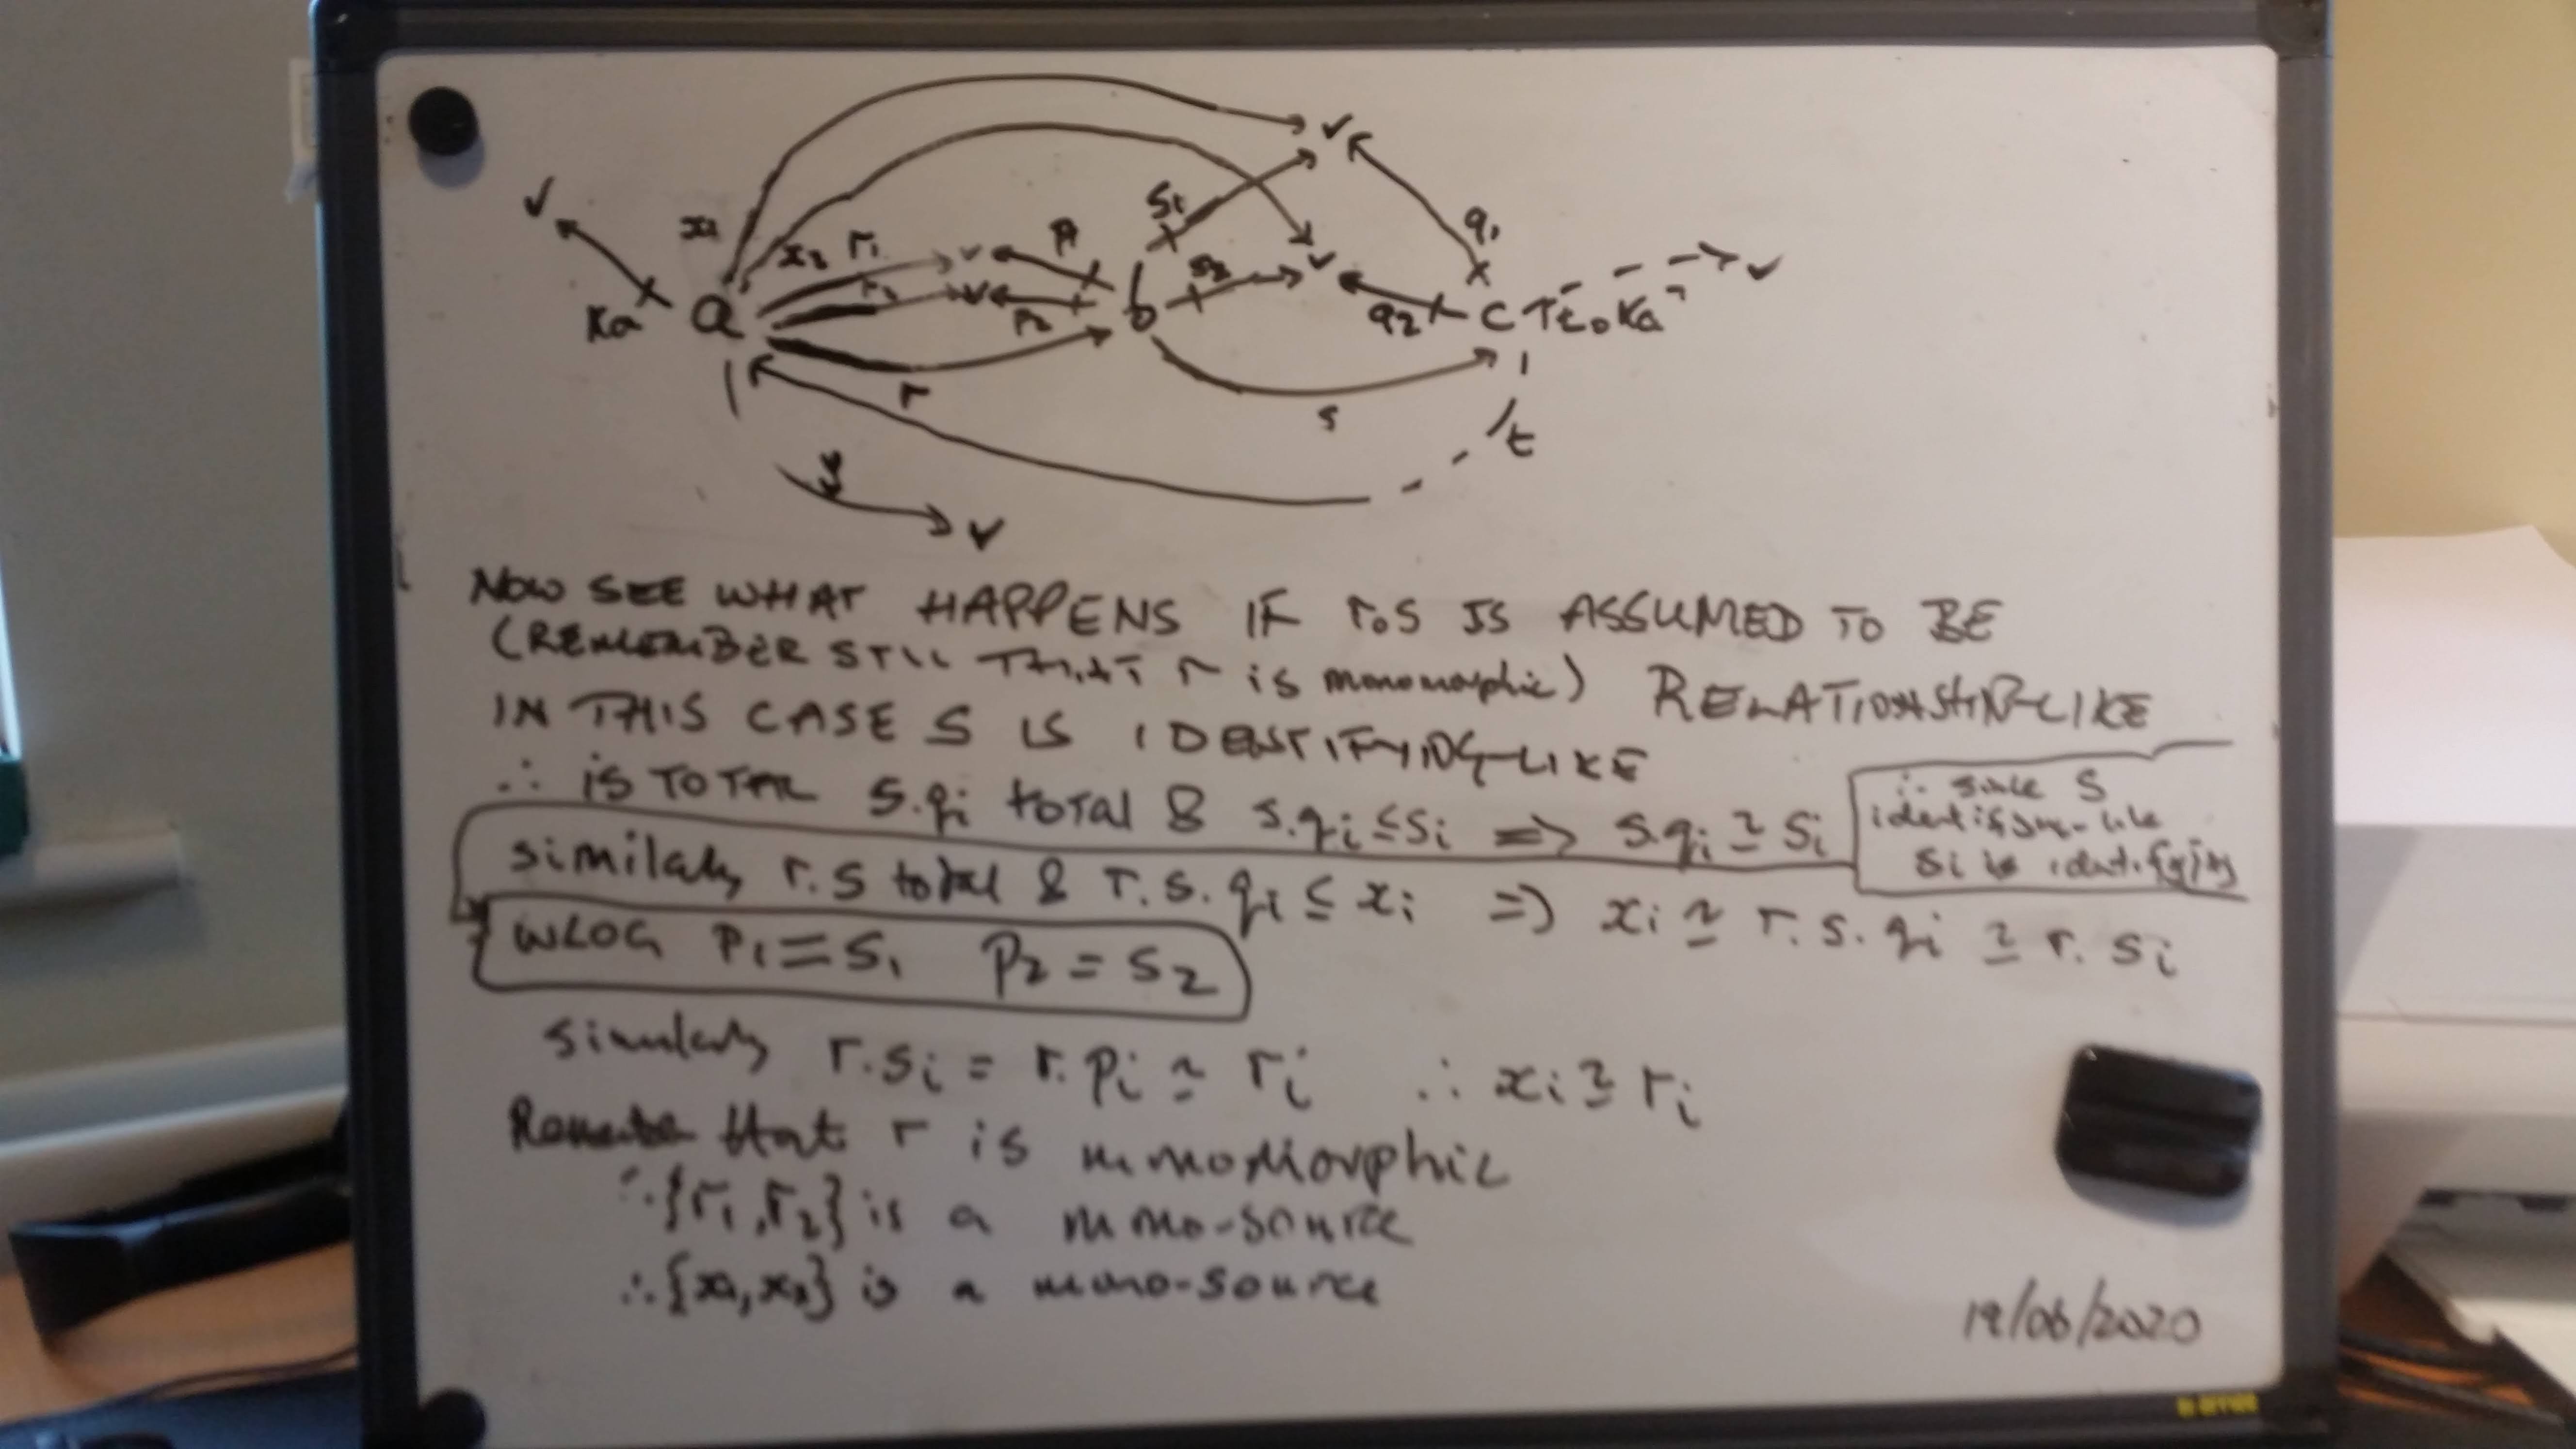 v
x1
s1
q1
v
x2 r1 v p1
s2 v v
r2 v
Ka a p2 b q2 c t∘Ka
r
s
t
y
v
NOW SEE WHAT HAPPENS IF r∘s IS ASSUMED TO BE
(REMEMBER STILL THAT r is monomorphic) RELATIONSHIP-LIKE
IN THIS CASE S IS IDENTIFYING-LIKE
∴ is TOTAL s.qi total & s.qi ≤ si => s.qi ≅ si
∴ since S
identifying-like
si is identifying
similarly r.s total & r.s.qi ≤ xi => xi ≅ r.s.qi ≅ r.si
WLOG p1 = s1 p2 = s2
similarly r.si = r.pi ≅ ri ∴ xi ≅ ri
Remember that r is monomorphic
∴ {r1, r2} is a mono-source
∴ {x1, x2} is a mono-source
/06/2020